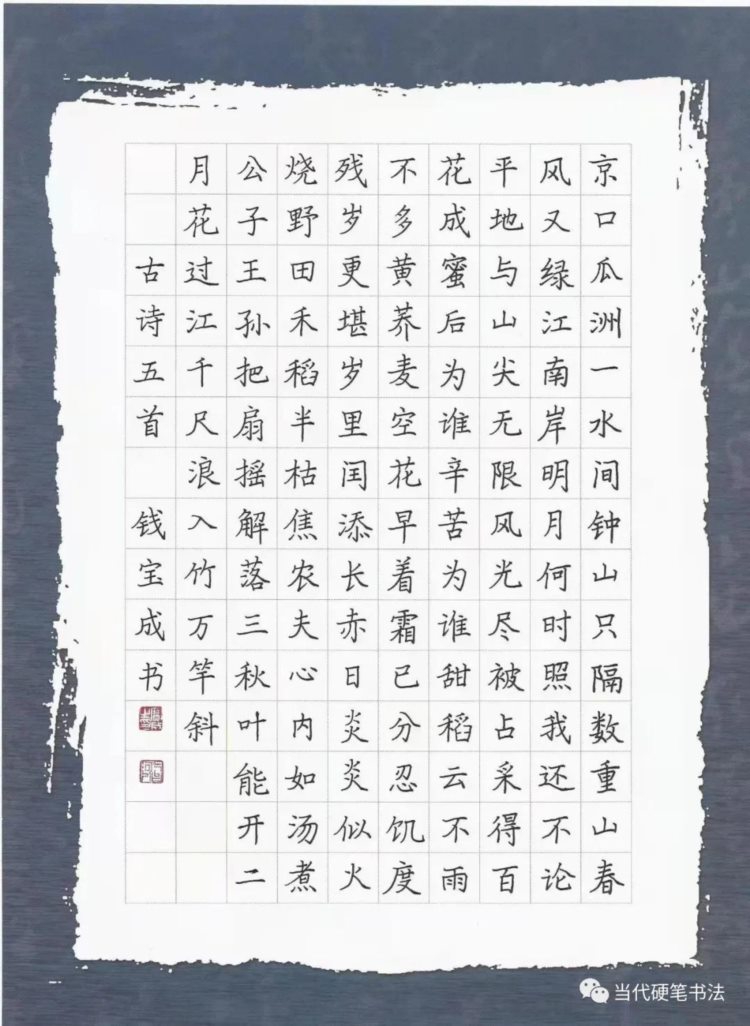 京口瓜洲一水间钟山只隔数重山春
风又绿江南岸明月何时照我还不论
平地与山尖无限风光尽被占采得百
花成蜜后为谁辛苦为谁甜稻云不雨
不多黄荞麦空花早着霜已分忍饥度
残岁更堪岁里闰添长赤日炎炎似火
烧野田禾稻半枯焦农夫心内如汤煮
公子王孙把扇摇解落三秋叶能开二
月花过江千尺浪入竹万竿斜
古诗五首 钱宝成书
当代硬笔书法